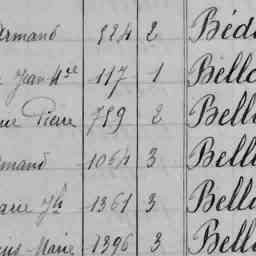 Armand 524 2 Béd
Jean Mel 117 1 Bella
Pierre 759 2 Bella
mand 1064 3 Bella
arie Jh 1361 3 Bella
Marie 1396 3 Bella